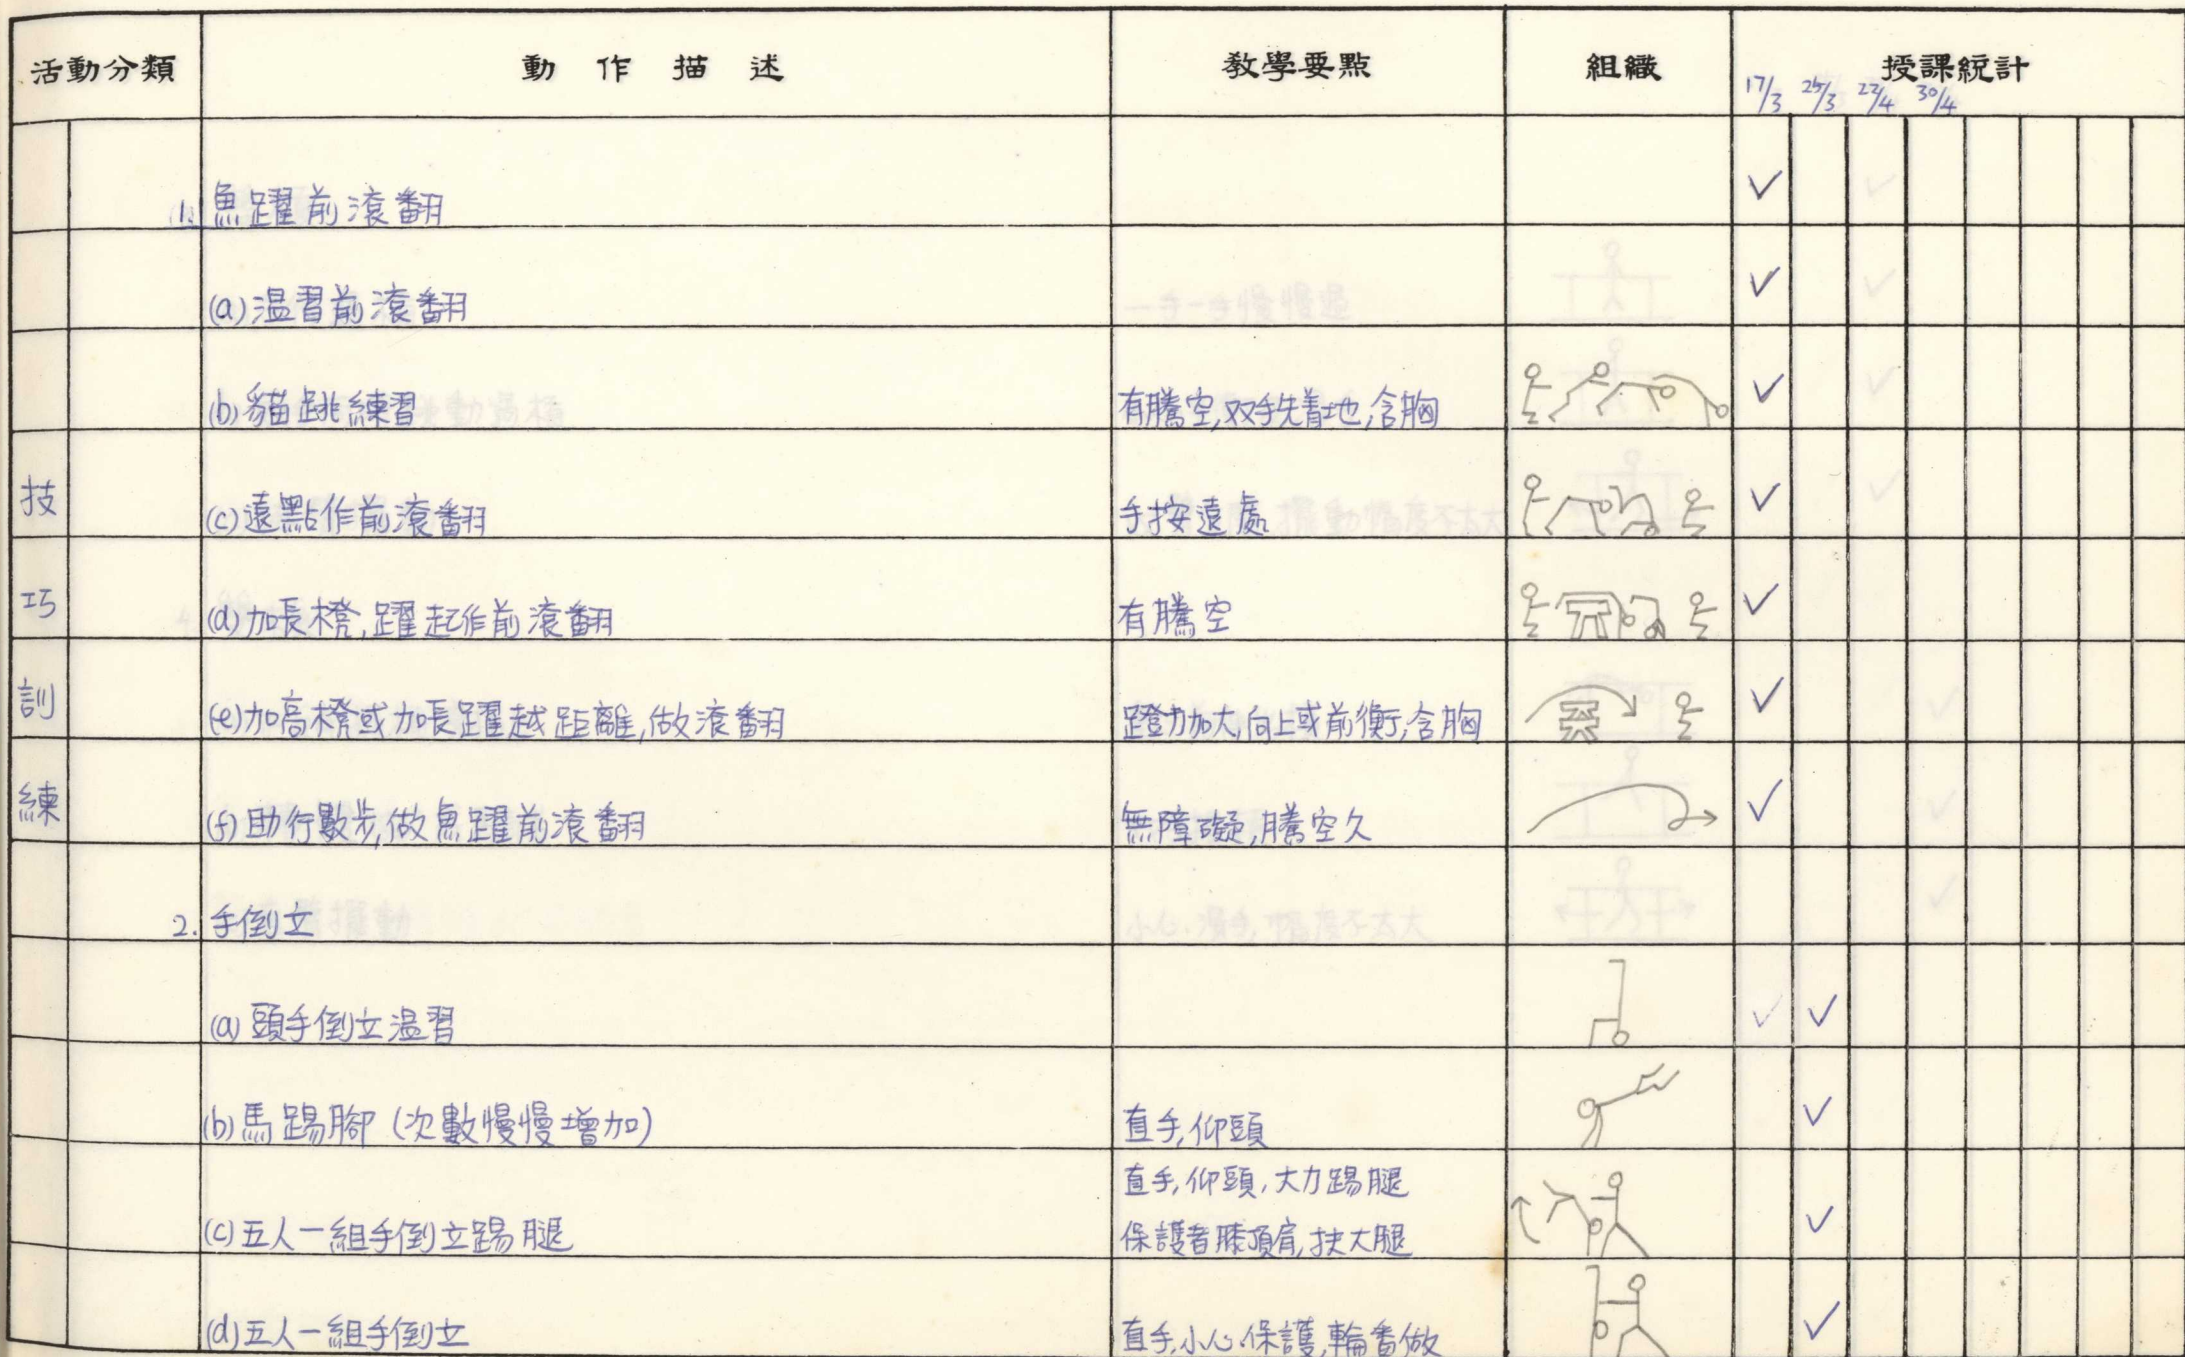 活動分類 動作描述 教學要點 組織 授課統計
17/3 25/3 22/4 30/4
技巧訓練
1. 魚躍前滾翻
(a) 温習前滾翻
(b) 貓跳練習 有騰空,双手先着地,含胸
(c) 遠點作前滾翻 手按遠處
(d) 加長櫈,躍起作前滾翻 有騰空
(e) 加高櫈或加長躍越距離,做滾翻 蹬力加大,向上或前衝,含胸
(f) 助行數步,做魚躍前滾翻 無障礙,騰空久
2. 手倒立
(a) 頭手倒立温習
(b) 馬踢腳 (次數慢慢增加) 直手,仰頭
直手,仰頭,大力踢腿
(c) 五人一組手倒立踢腿 保護者膝頂肩,扶大腿
(d) 五人一組手倒立 直手,小心保護,輪番做